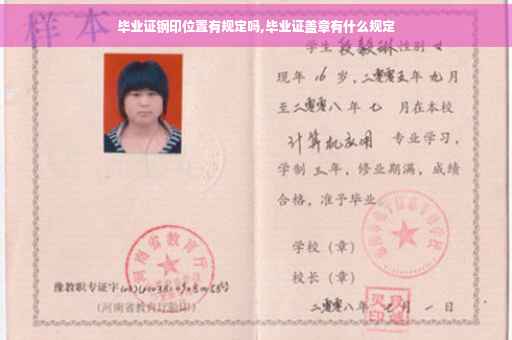 毕业证钢印位置有规定吗,毕业证盖章有什么规定
样本
学生 段毅琳 性别 女
现年 16 岁,二零零五年 九月
至二零零八年 七 月在本校
计算机应用 专业学习,
学制 三 年,修业期满,成绩
合格,准予毕业
学校(章)
校长(章)
二零零八年 七 月 一 日
河南省教育厅
豫教职专证字
(河南省教育厅验印)